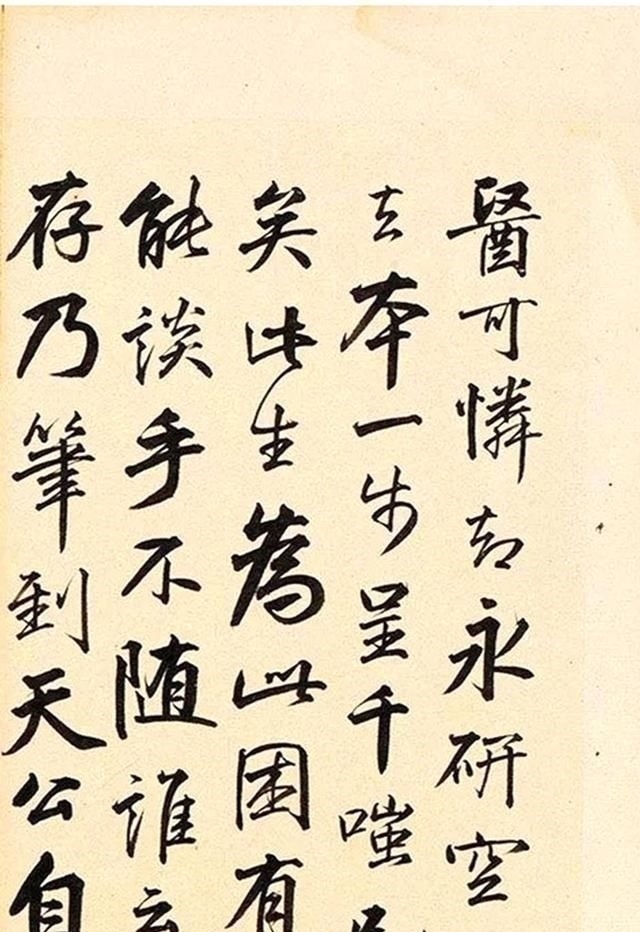 醫可憐永研空
去本一步呈千嗤
矣此生為此困有
能談手不随誰云
存乃筆到天公自